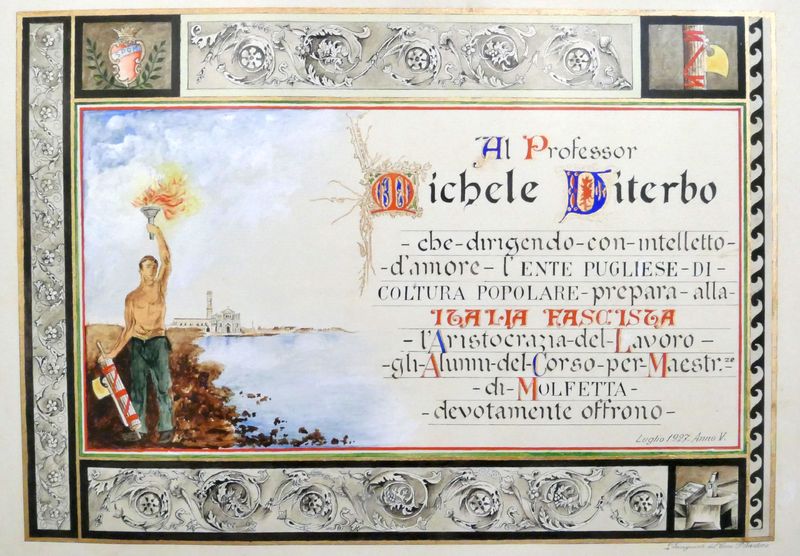 Al Professor
Michele Viterbo
-che-dirigendo-con-intelletto-
-d'amore-l'ENTE PUGLIESE-DI-
COLTURA POPOLARE-prepara-alla-
ITALIA FASCISTA
-l'Aristocrazia-del-Lavoro-
-gli-Alunni-del-Corso-per-Maestr.ze
-di-MOLFETTA-
-devotamente offrono-
Luglio 1927. Anno V.